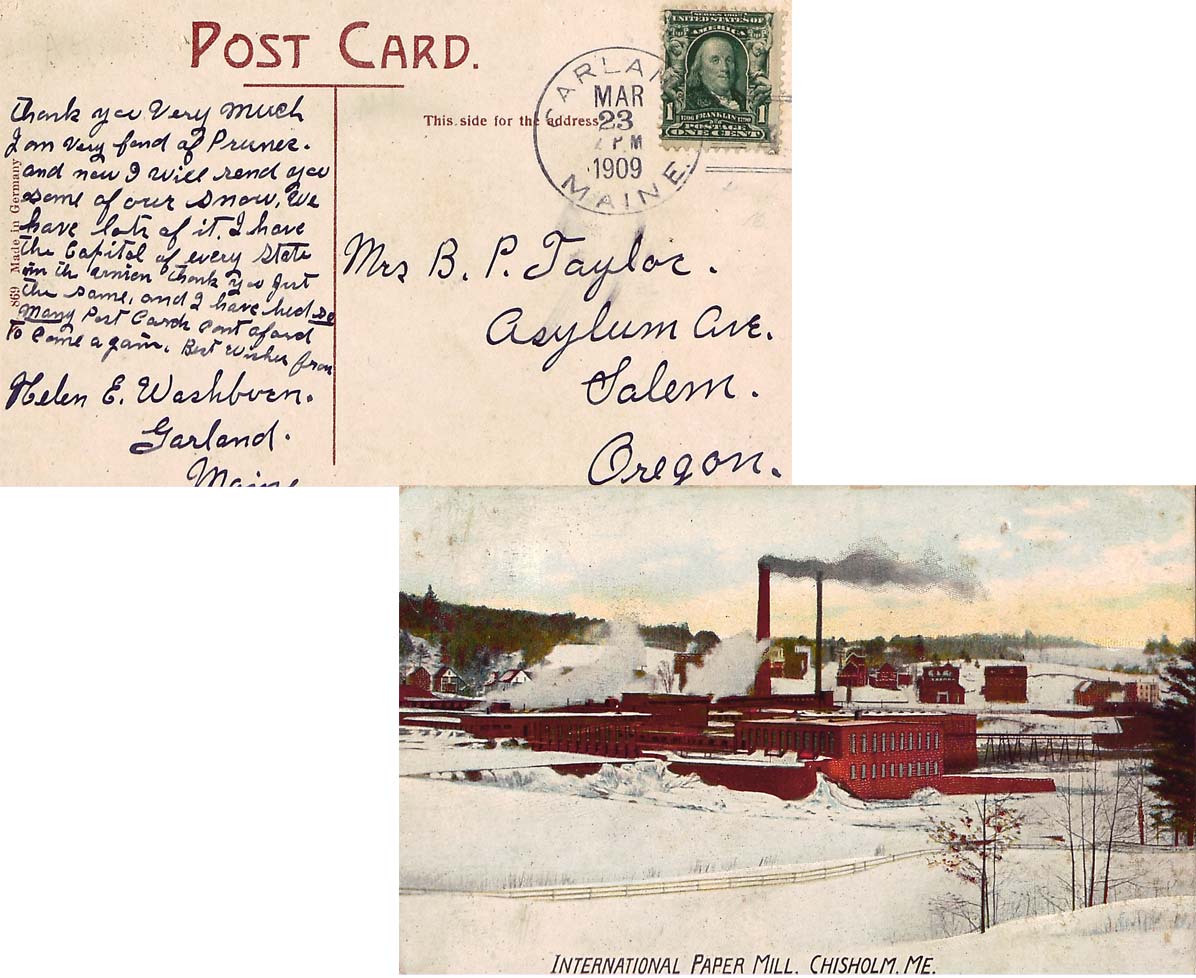 POST CARD.
This side for the address
GARLAN
MAR
23
PM
1909
MAINE.
SERIES 1902
UNITED STATES OF
AMERICA
1 1
1706 FRANKLIN 1790
POSTAGE
ONE CENT
869 Made in Germany
Thank you Very Much
I am Very fond of Prunes.
and now I will send you
some of our snow, We
have lots of it. I have
the Capitol of every State
in the union thank you Just
the same, and I have had so
Many Post Cards Cant aford
To Come again. Best Wishes from
Helen E. Washburn.
Garland.
Maine
Mrs B. P. Taylor.
Asylum Ave.
Salem.
Oregon.
INTERNATIONAL PAPER MILL, CHISHOLM, ME.